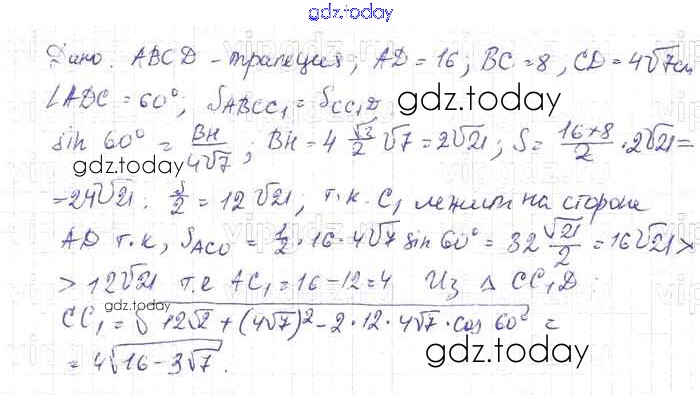 gdz.today
Дано: ABCD - трапеция, AD = 16; BC = 8, CD = 4√7 см
∠ADC = 60°; S_ABCC₁ = S_CC₁D
gdz.today
sin 60° = BH/4√7; BH = 4 √3/2 √7 = 2√21; S = (16+8)/2 · 2√21 =
gdz.today
= 24√21. S/2 = 12√21, т.к. C₁ лежит на стороне
AD т.к, S_ACD = 1/2 · 16 · 4√7 sin 60° = 32 √21/2 = 16√21 >
> 12√21 т.е AC₁ = 16 - 12 = 4 Из Δ CC₁D.
gdz.today
CC₁ = √(12√2 + (4√7)² - 2 · 12 · 4√7 · cos 60°) =
= 4√(16 - 3√7).
gdz.today